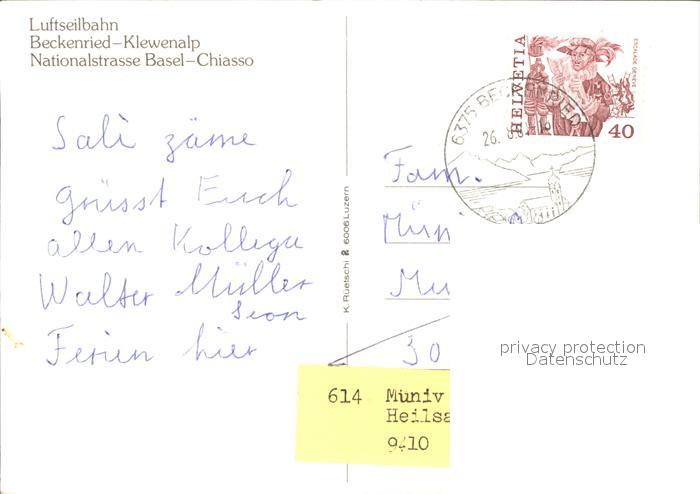 Luftseilbahn
Beckenried–Klewenalp
Nationalstrasse Basel–Chiasso
Sali zäme
grüsst Euch
allen Kollega
Walter Müller
Seon
Ferien hier
K. Rüetschi 6006 Luzern
HELVETIA
ESCALADE GENÈVE
40
6375 BECKENRIED
26.
Fam.
Müni
Mu
30
privacy protection
Datenschutz
614 Müniv
Heilsa
9410